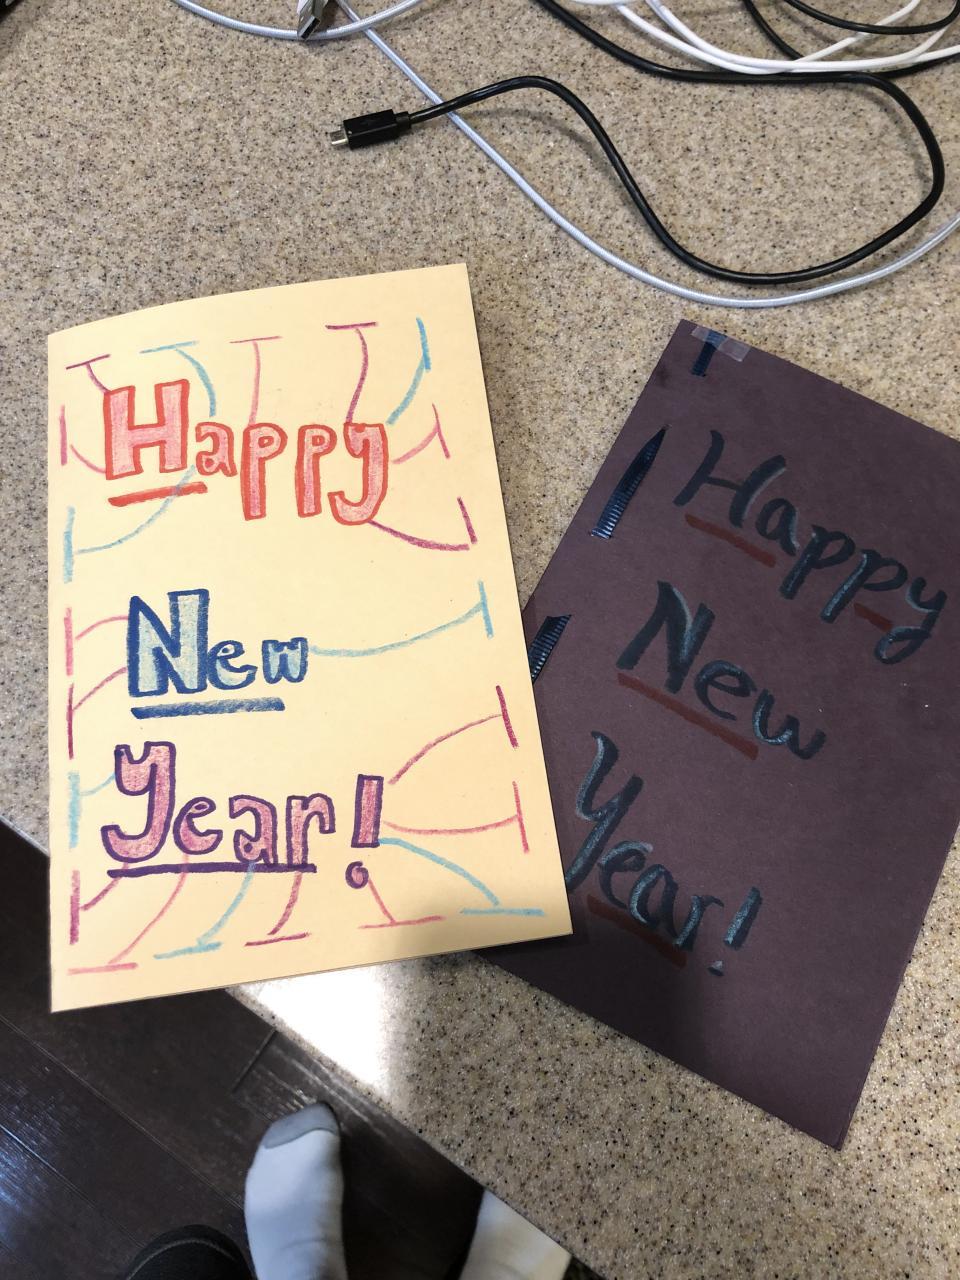 Happy
New
Year!
Happy
New
Year!